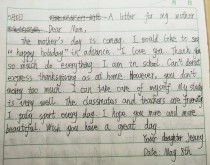 A letter for my mother
Dear Mom,
The mother's day is coming. I would like to say
"happy holiday" in advance. I love you. Thank you
so much do everything. I am in school. Can't
express thanksgiving as at home. However, you don't
much too much. I can take care of myself. My study
is very well. The classmates and teachers are friendly.
I play sport every day. I hope you more and more
beautiful. Wish you have a great day.
Your daughter Jenny
Date: May 8th